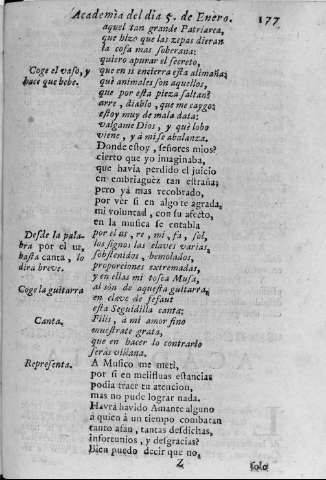 Academia del dia 5. de Enero. 177
aquel tan grande Patriarca,
que hizo que las zepas dieran
la cosa mas soberana:
quiero apurar el secreto,
Coge el vaso, y
hace que bebe.
que en si encierra esta alimaña;
què animales son aquellos,
que por esta pieza saltan?
arre, diablo, que me caygo:
estoy muy de mala data:
valgame Dios, y què lobo
viene, y à mi se abalanza.
Donde estoy, señores mios?
cierto que yo imaginaba,
que havia perdido el juicio
en embriaguèz tan estraña;
pero yà mas recobrado,
por vèr si en algo te agrada,
mi voluntad, con su afecto,
en la musica se entabla
Desde la pala-
bra por el ut,
hasta canta, lo
dirà breve.
por el ut, re, mi, fa, sol,
los signos las claves varias,
sobstenidos, bemolados,
proporciones extremadas,
y en ellas mi tosca Musa,
Coge la guitarra
al sòn de aquesta guitarra,
en clave de fefaut
esta Seguidilla canta:
Canta.
Filis, à mi amor fino
muestrate grata,
que en hacer lo contrario
seràs villana.
Representa.
A Musico me metì,
por si en melifluas estancias
podia traer tu atencion,
mas no pude lograr nada.
Havrà havido Amante alguno
à quien à un tiempo combatan
tanto afàn, tantas desdichas,
infortunios, y desgracias?
Bien puedo decir que no,
Z
solo